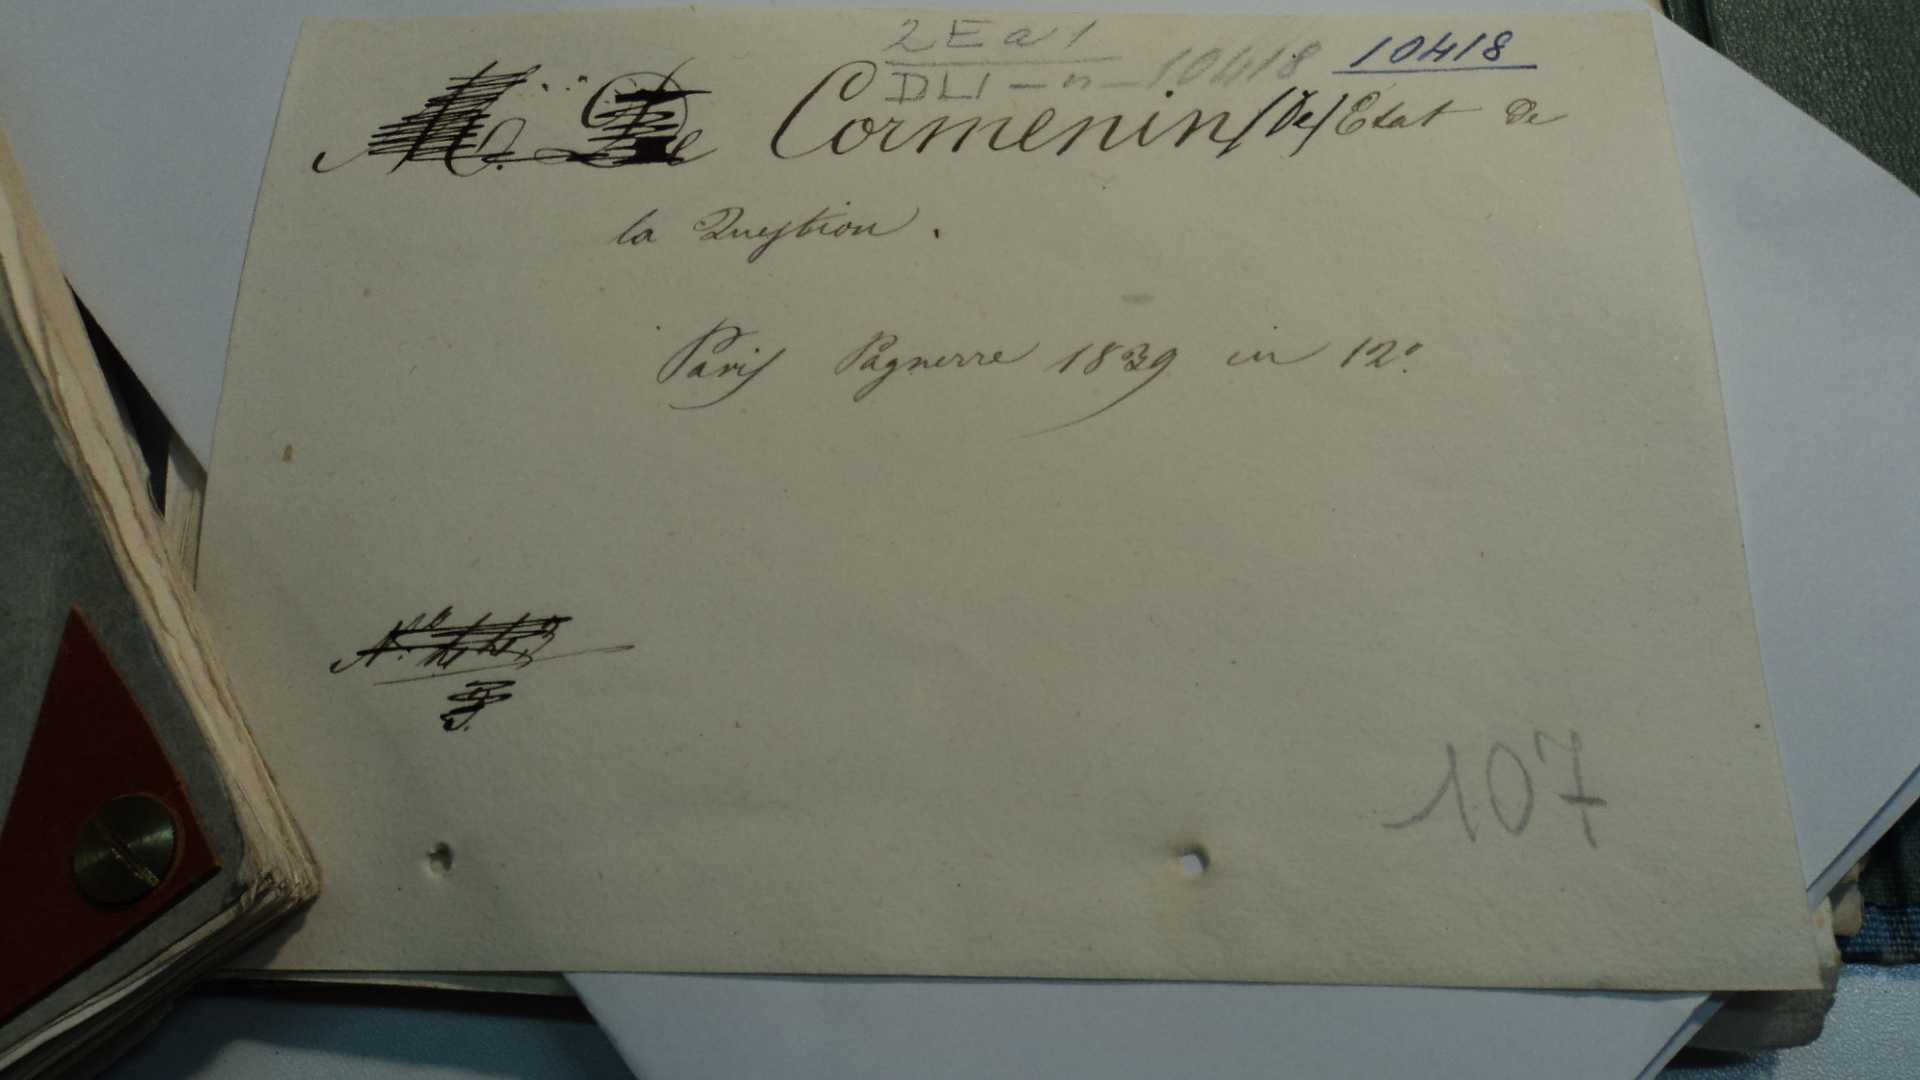 2 E a 1
DLI - n - 10418 10418
M. De Cormenin (De) Etat de
la Question.
Paris Pagnerre 1839 in 12°.
107